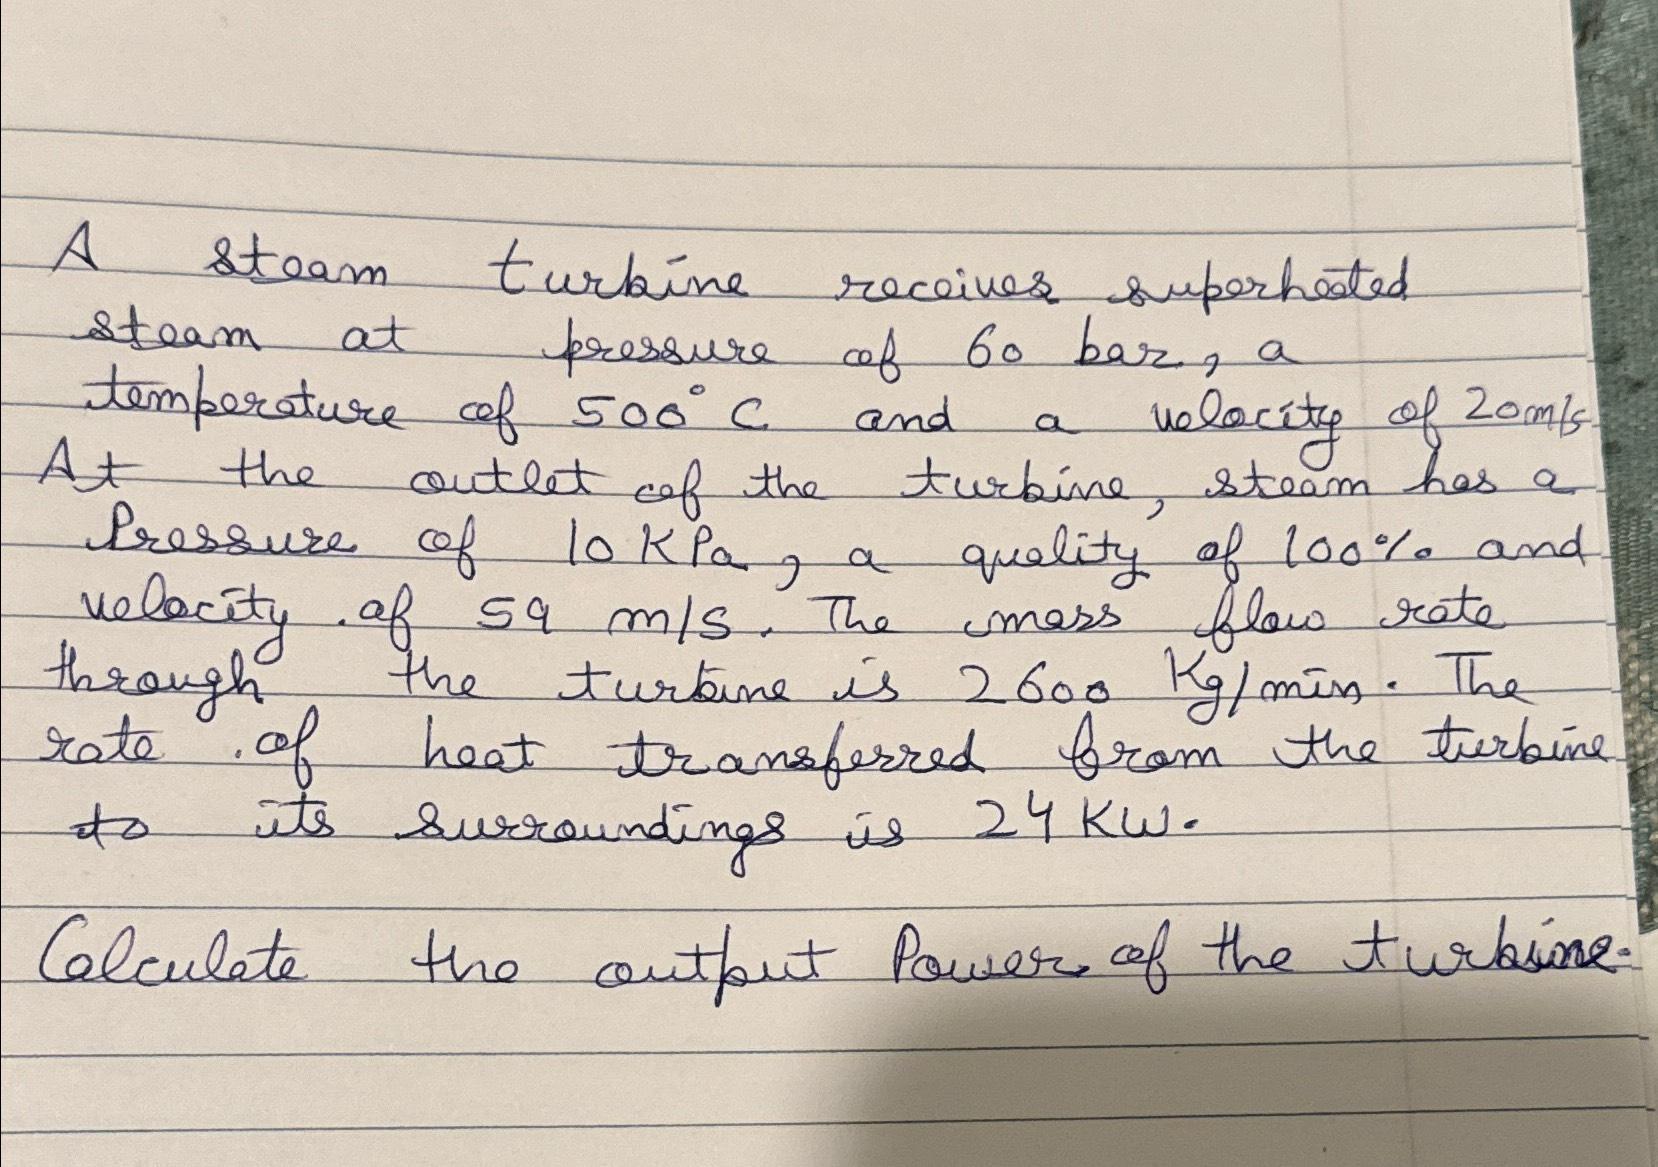 A steam turbine receives superheated
steam at pressure of 60 bar, a
temperature of 500°C and a velocity of 20m/s
At the outlet of the turbine, steam has a
Pressure of 10 KPa, a quality of 100% and
velocity of 59 m/s. The mass flow rate
through the turbine is 2600 Kg/min. The
rate of heat transferred from the turbine
to its surroundings is 24 KW.
Calculate the output Power of the turbine.